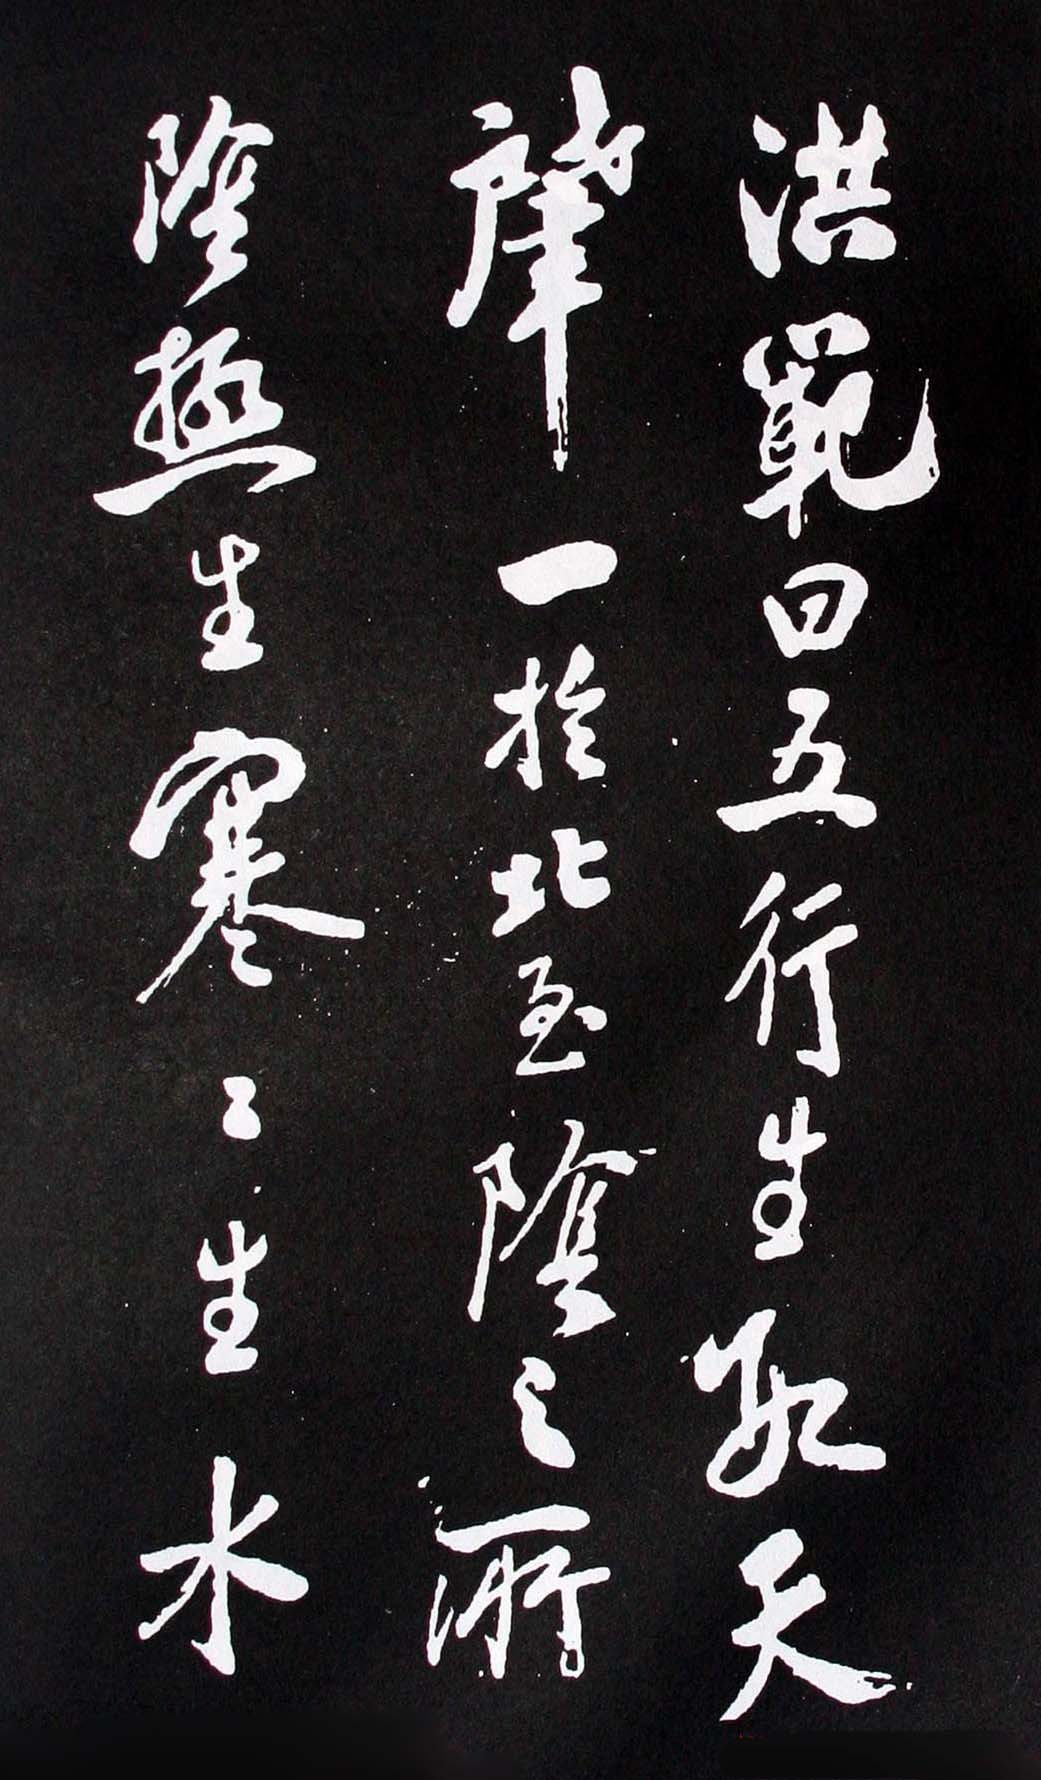 洪範曰五行生數天
肇一於北至陰之所
陰極生寒〻生水